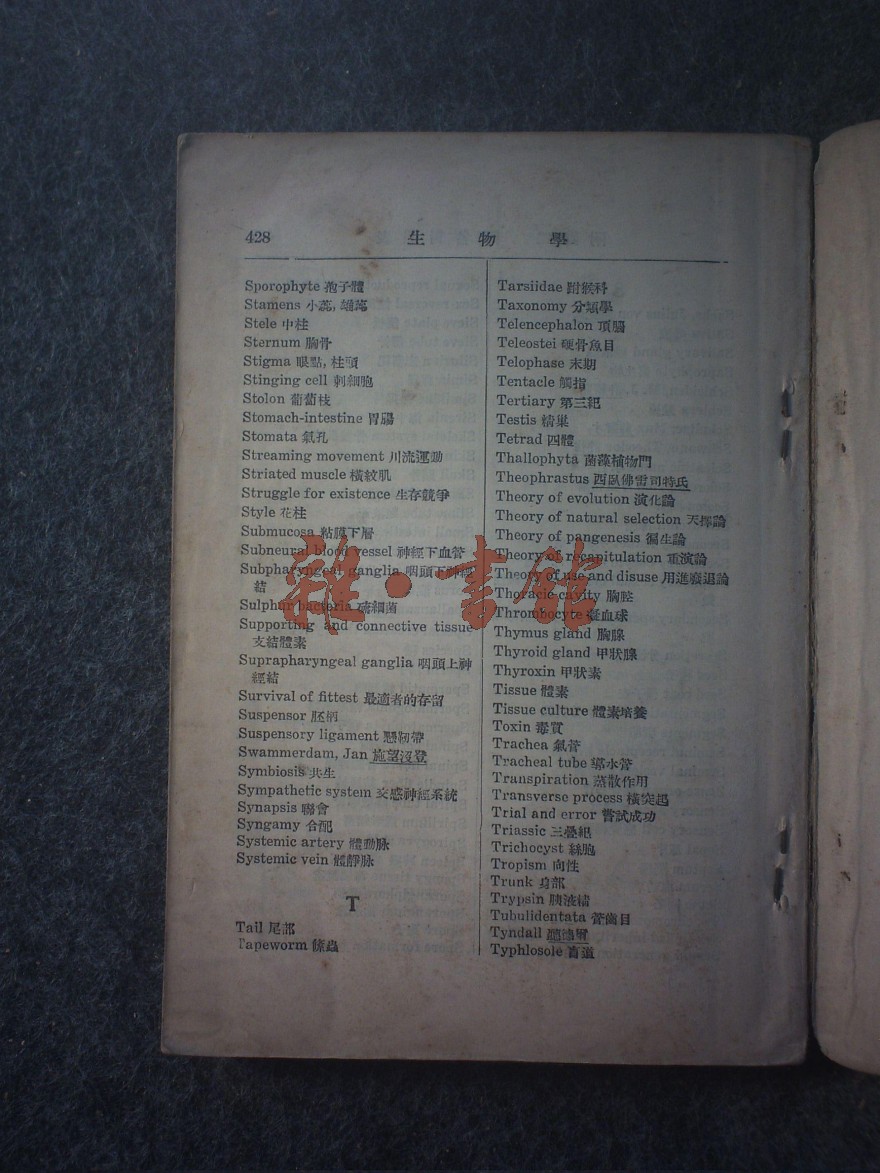 428 生物學
Sporophyte 孢子體
Stamens 小蕊, 雄蕊
Stele 中柱
Sternum 胸骨
Stigma 眼點, 柱頭
Stinging cell 刺細胞
Stolon 葡萄枝
Stomach-intestine 胃腸
Stomata 氣孔
Streaming movement 川流運動
Striated muscle 橫紋肌
Struggle for existence 生存競爭
Style 花柱
Submucosa 粘膜下層
Subneural blood vessel 神經下血管
Subpharyngeal ganglia 咽頭下神經
結
Sulphur bacteria 硫細菌
Supporting and connective tissue
支結體素
Suprapharyngeal ganglia 咽頭上神
經結
Survival of fittest 最適者的存留
Suspensor 胚柄
Suspensory ligament 懸韌帶
Swammerdam, Jan 施望沒登
Symbiosis 共生
Sympathetic system 交感神經系統
Synapsis 聯會
Syngamy 合配
Systemic artery 體動脉
Systemic vein 體靜脉
T
Tail 尾部
Tapeworm 絛蟲
Tarsiidae 跗猴科
Taxonomy 分類學
Telencephalon 頂腦
Teleostei 硬骨魚目
Telophase 末期
Tentacle 觸指
Tertiary 第三紀
Testis 精巢
Tetrad 四體
Thallophyta 菌藻植物門
Theophrastus 西臥佛雷司特氏
Theory of evolution 演化論
Theory of natural selection 天擇論
Theory of pangenesis 彌生論
Theory of recapitulation 重演論
Theory of use and disuse 用進廢退論
Thoracic cavity 胸腔
Thrombocyte 凝血球
Thymus gland 胸腺
Thyroid gland 甲狀腺
Thyroxin 甲狀素
Tissue 體素
Tissue culture 體素培養
Toxin 毒質
Trachea 氣管
Tracheal tube 導水管
Transpiration 蒸散作用
Transverse process 橫突起
Trial and error 嘗試成功
Triassic 三疊紀
Trichocyst 絲胞
Tropism 向性
Trunk 身部
Trypsin 胰液精
Tubulidentata 管齒目
Tyndall
Typhlosole 盲道
雜·書館